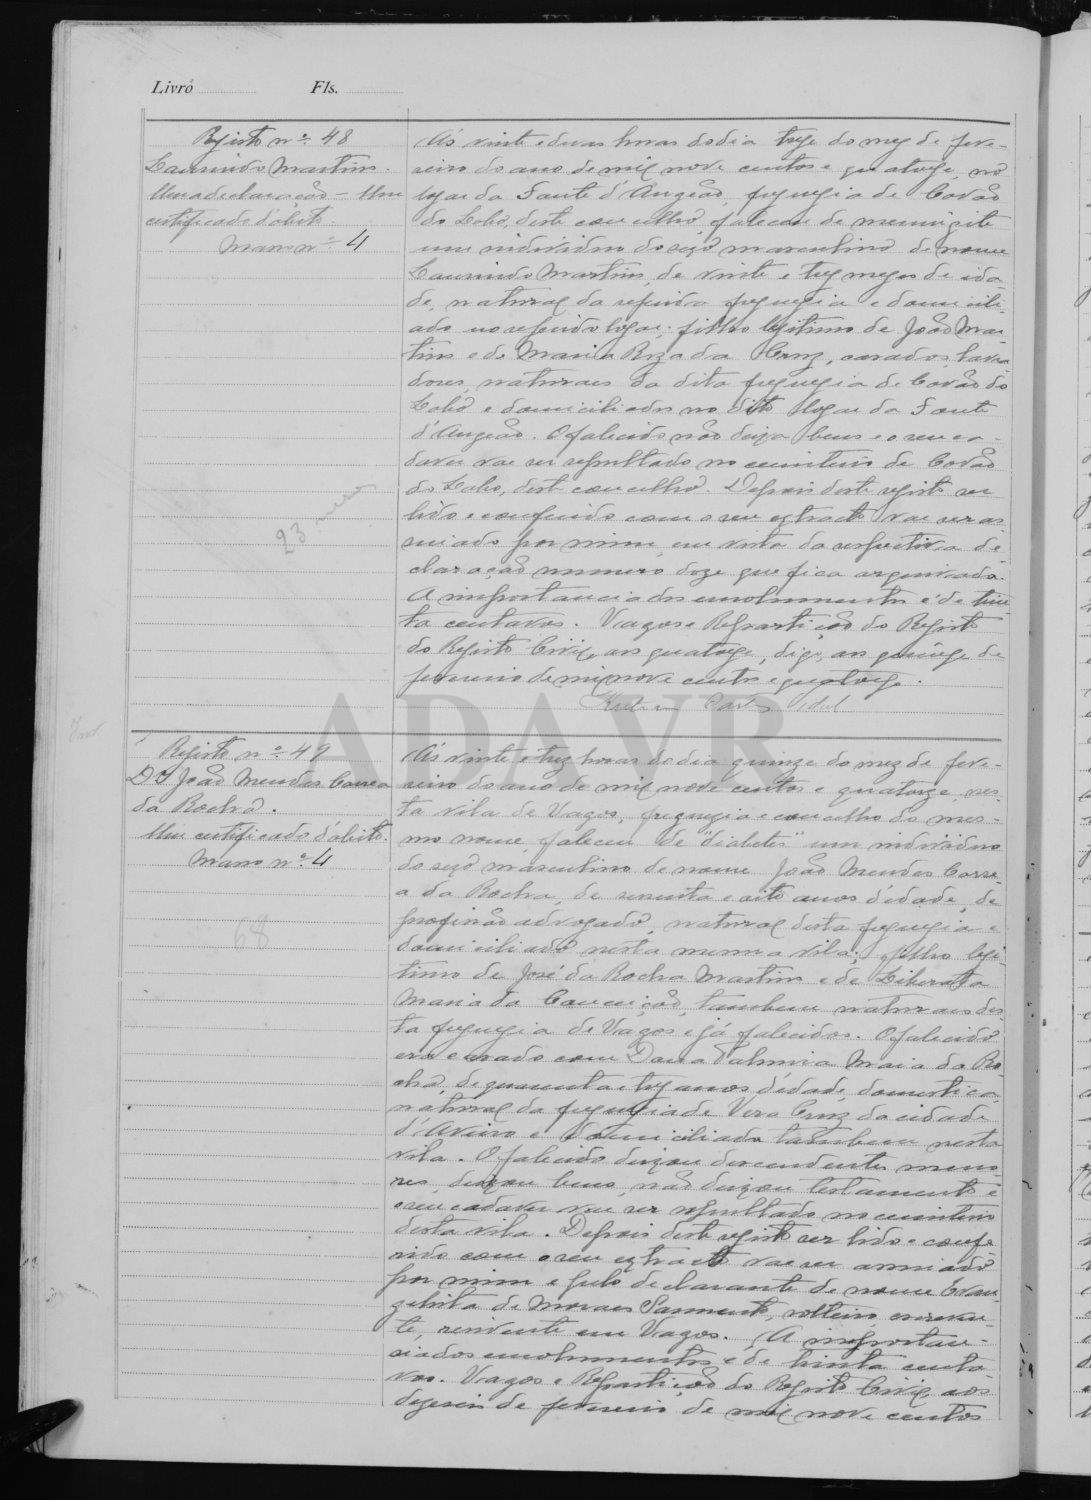 Livro Fls.
Registo nº 48
Laurindo Martins.
Uma declaração — Um
certificado d'óbito.
Maço nº 4
23 meses
Ás vinte e duas horas do dia treze do mez de feve-
reiro do ano de mil nove centos e quatorze, no
logar da Fonte d'Angeão, freguezia de Covão
do Lobo, deste concelho, faleceu de meningite
um individuo do sexo masculino de nome
Laurindo Martins, de vinte e trez mezes de ida-
de, natural da referida freguezia e domicili-
ado no referido logar; filho legitimo de João Mar-
tins e de Maria Roza da Cruz, casados, lavra-
dores, naturaes da dita freguezia de Covão do
Lobo e domiciliados no dito logar da Fonte
d'Angeão. O falecido não deixa bens e o seu ca-
daver vae ser sepultado no cemiterio de Covão
do Lobo, deste concelho. Depois deste registo ser
lido e conferido com o seu extracto vae ser as-
sinado por mim, em vista da respectiva de-
claração numero doze que fica arquivada.
A importancia dos emolumentos é de trin-
ta centavos. Vagos e Repartição do Registo
do Registo Civil, aos quatorze, digo, aos quinze de
fevereiro de mil nove centos e quatorze.
ADAVR
Registo nº 49
Dr João Mendes Correa
da Rocha.
Um certificado d'óbito.
Maço nº 4
68
Ás vinte e trez horas do dia quinze do mez de feve-
reiro do ano de mil nove centos e quatorze, nes-
ta vila de Vagos, freguezia e concelho do mes-
mo nome, faleceu de "diabetes" um individuo
do sexo masculino de nome João Mendes Corre-
a da Rocha, de sessenta e oito anos d'edade, de
profissão advogado, natural desta freguezia e
domiciliado nesta mesma vila; filho legi-
timo de José da Rocha Martins e de Liberata
Maria da Conceição, tambem naturaes des-
ta freguezia de Vagos e já falecidos. O falecido
era casado com Dona Palmira Maia da Ro-
cha, de quarenta e trez anos d'edade, domestica,
natural da freguezia de Vera Cruz da cidade
d'Aveiro e domiciliada tambem nesta
vila. O falecido deixou descendentes meno-
res, deixou bens, não deixou testamento e
o seu cadaver vae ser sepultado no cemiterio
desta vila. Depois deste registo ser lido e confe-
rido com o seu extracto vae ser assinado
por mim e pelo declarante de nome Evan-
gelista de Moraes Sarmento, solteiro, escreven-
te, residente em Vagos. A importan-
cia dos emolumentos é de trinta centa-
vos. Vagos e Repartição do Registo Civil, aos
dezeseis de fevereiro de mil nove centos